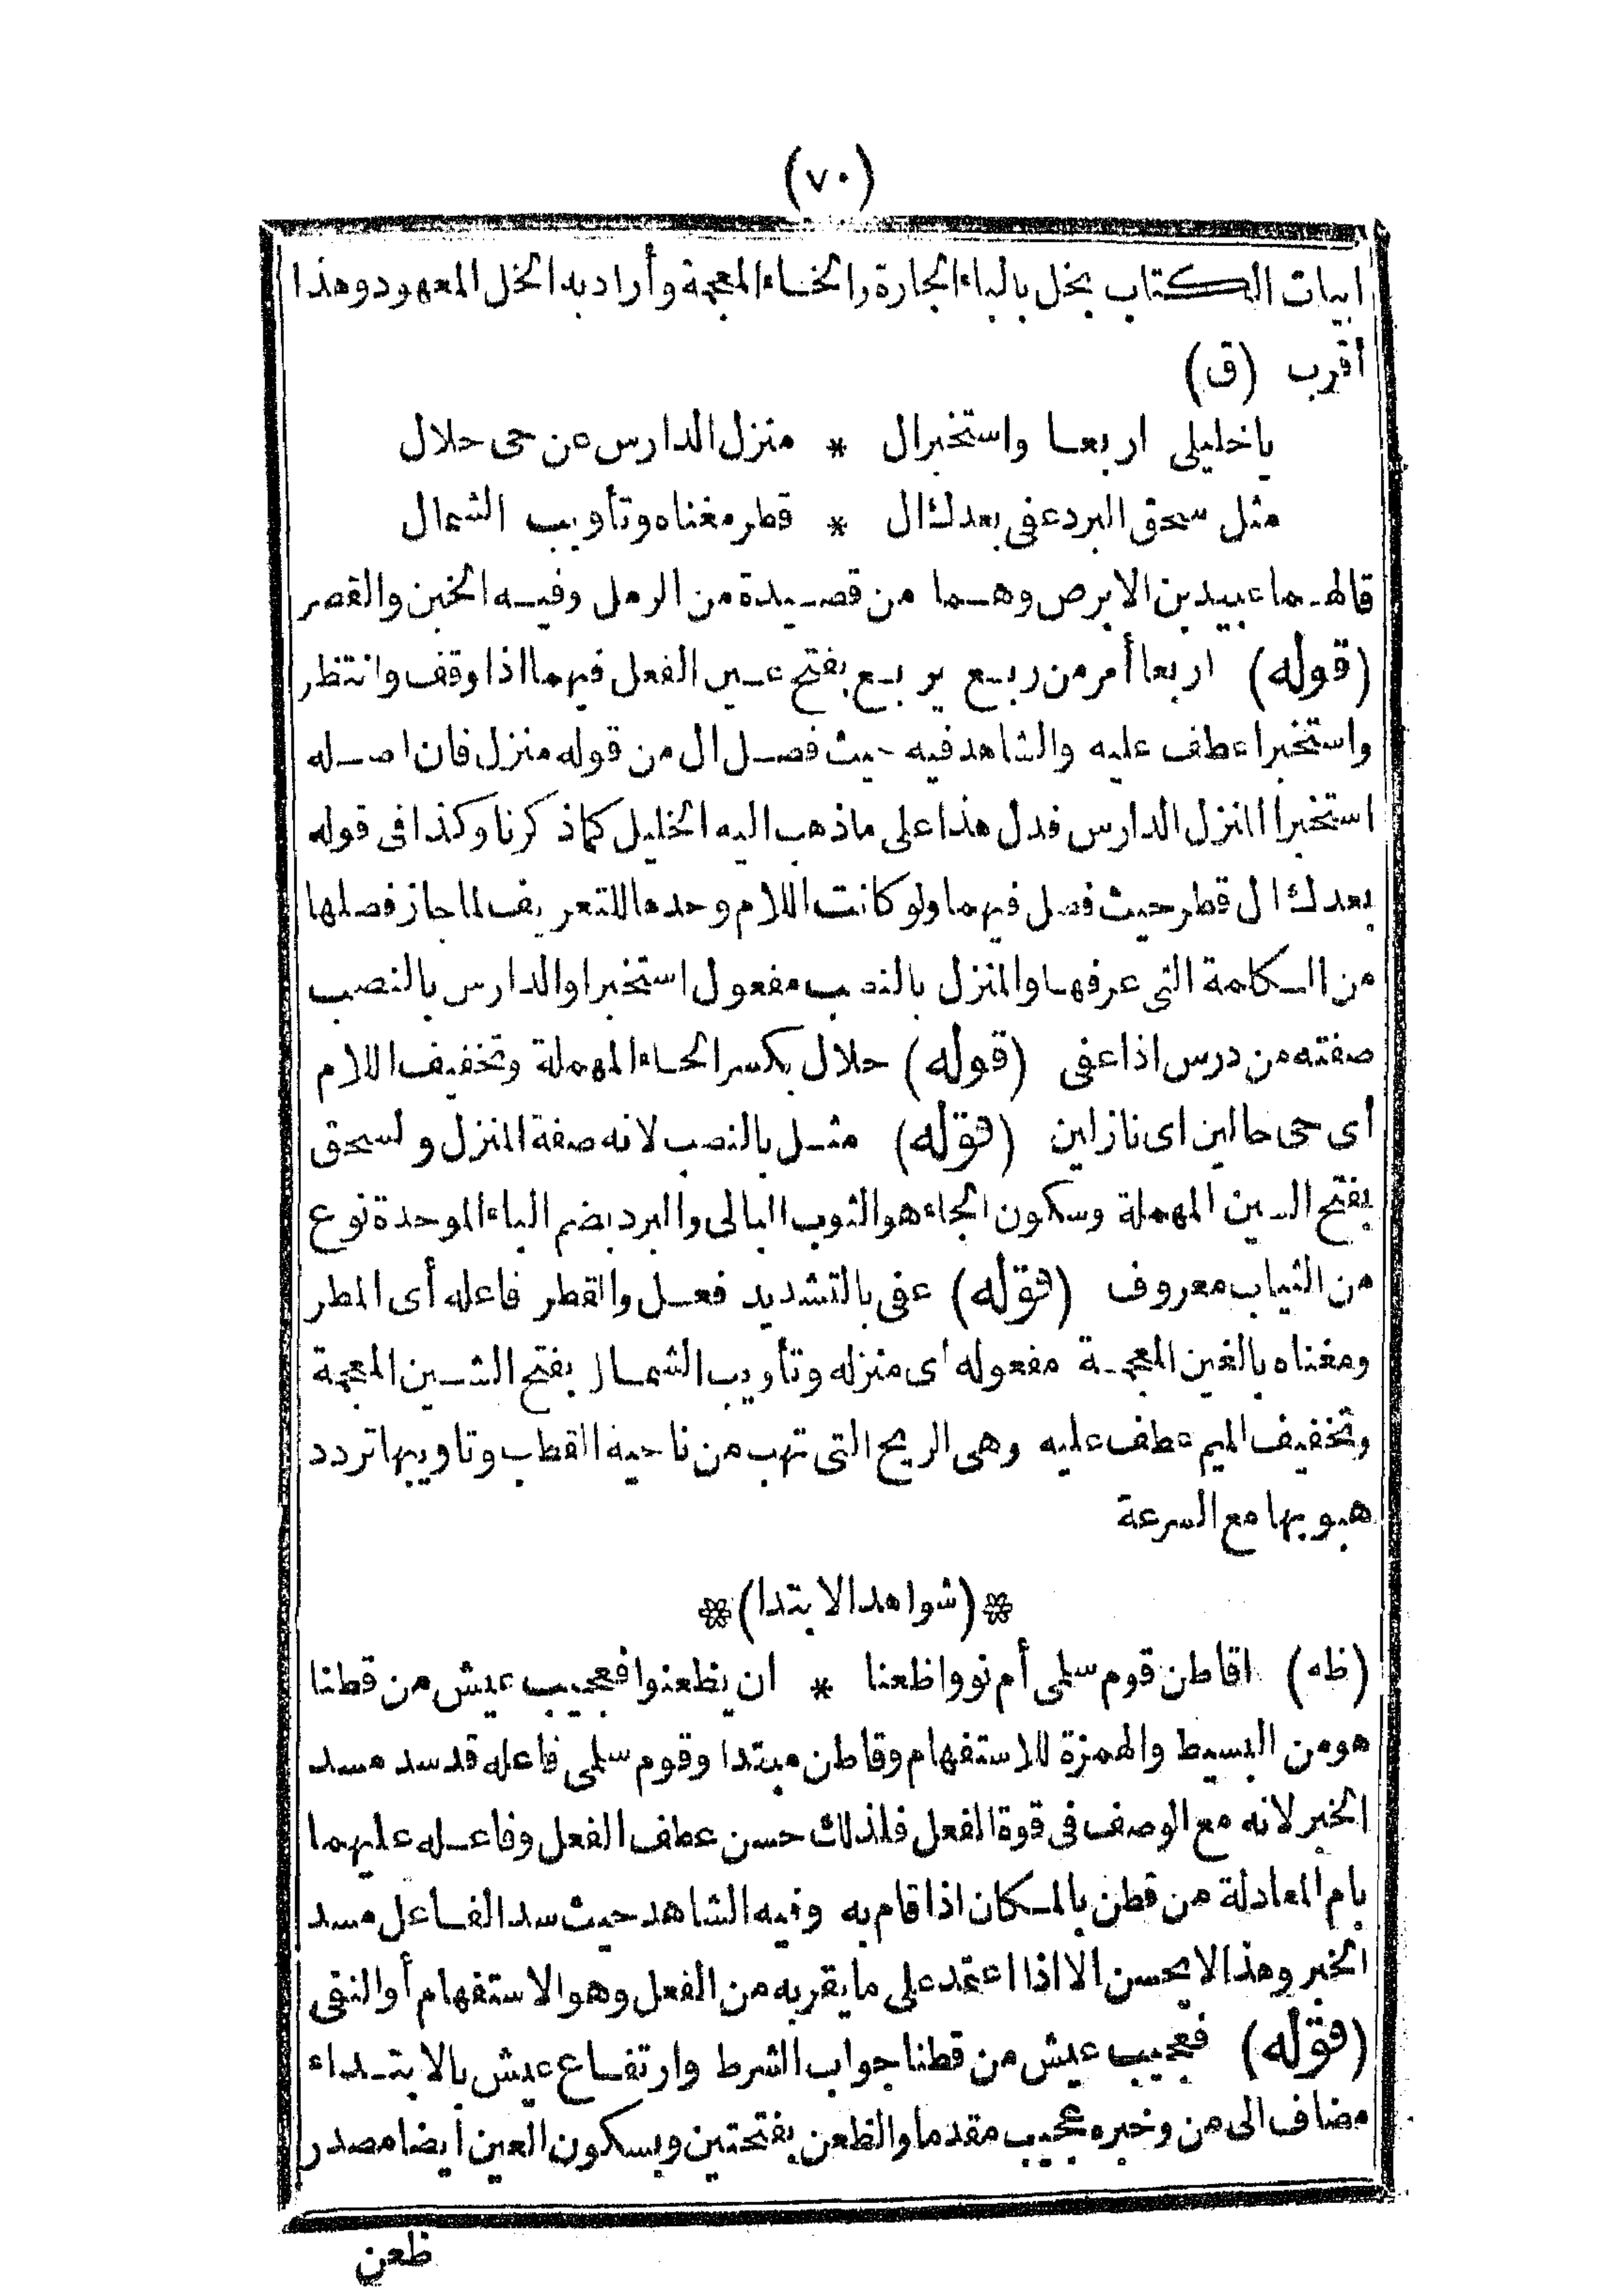 (٧٠)
ابيات الكتاب بخل بالباء الجارة والخاء المعجمة وأراد به الخل المعهود وهذا
أقرب (ق)
ياخليلى اربعا واستخبرال * منزل الدارس عن حى حلال
مثل سحق البرد عفى بعدك ال * قطر مغناه وتأويب الشمال
قالهما عبيد بن الابرص وهما من قصيدة من الرمل وفيه الخبن والقصر
(قوله) اربعا أمر من ربع يربع بفتح عين الفعل فيهما اذا وقف وانتظر
واستخبرا عطف عليه والشاهد فيه حيث فصل ال من قوله منزل فان اصله
استخبرا المنزل الدارس فدل هذا على ماذهب اليه الخليل كماذكرنا وكذا فى قوله
بعدك ال قطر حيث فصل فيهما ولو كانت اللام وحدها للتعريف لما جاز فصلها
من الكلمة التى عرفها والمنزل بالنصب مفعول استخبرا والدارس بالنصب
صفته من درس اذا عفى (قوله) حلال بكسر الحاء المهملة وتخفيف اللام
أى حى حالين اى نازلين (قوله) مثل بالنصب لانه صفة المنزل ولسحق
بفتح السين المهملة وسكون الحاء هو الثوب البالى والبرد بضم الباء الموحدة نوع
من الثياب معروف (قوله) عفى بالتشديد فعل والقطر فاعله أى المطر
ومغناه بالغين المعجمة مفعوله اى منزله وتأويب الشمال بفتح الشين المعجمة
وتخفيف الميم عطف عليه وهى الريح التى تهب من ناحية القطب وتاويبها تردد
هبوبها مع السرعة
*(شواهد الابتدا)*
(ظه) اقاطن قوم سلمى أم نووا ظعنا * ان يظعنوا فعجيب عيش من قطنا
هو من البسيط والهمزة للاستفهام وقاطن مبتدا وقوم سلمى فاعله قد سد مسد
الخبر لانه مع الوصف فى قوة الفعل فلذلك حسن عطف الفعل وفاعله عليهما
بام المعادلة من قطن بالمكان اذا قام به وفيه الشاهد حيث سد الفاعل مسد
الخبر وهذا لا يحسن الا اذا اعتمد على ما يقربه من الفعل وهو الاستفهام أو النفى
(قوله) فعجيب عيش من قطنا جواب الشرط وارتفاع عيش بالابتداء
مضاف الى من وخبره عجيب مقدما والظعن بفتحتين وبسكون العين أيضا مصدر
ظعن